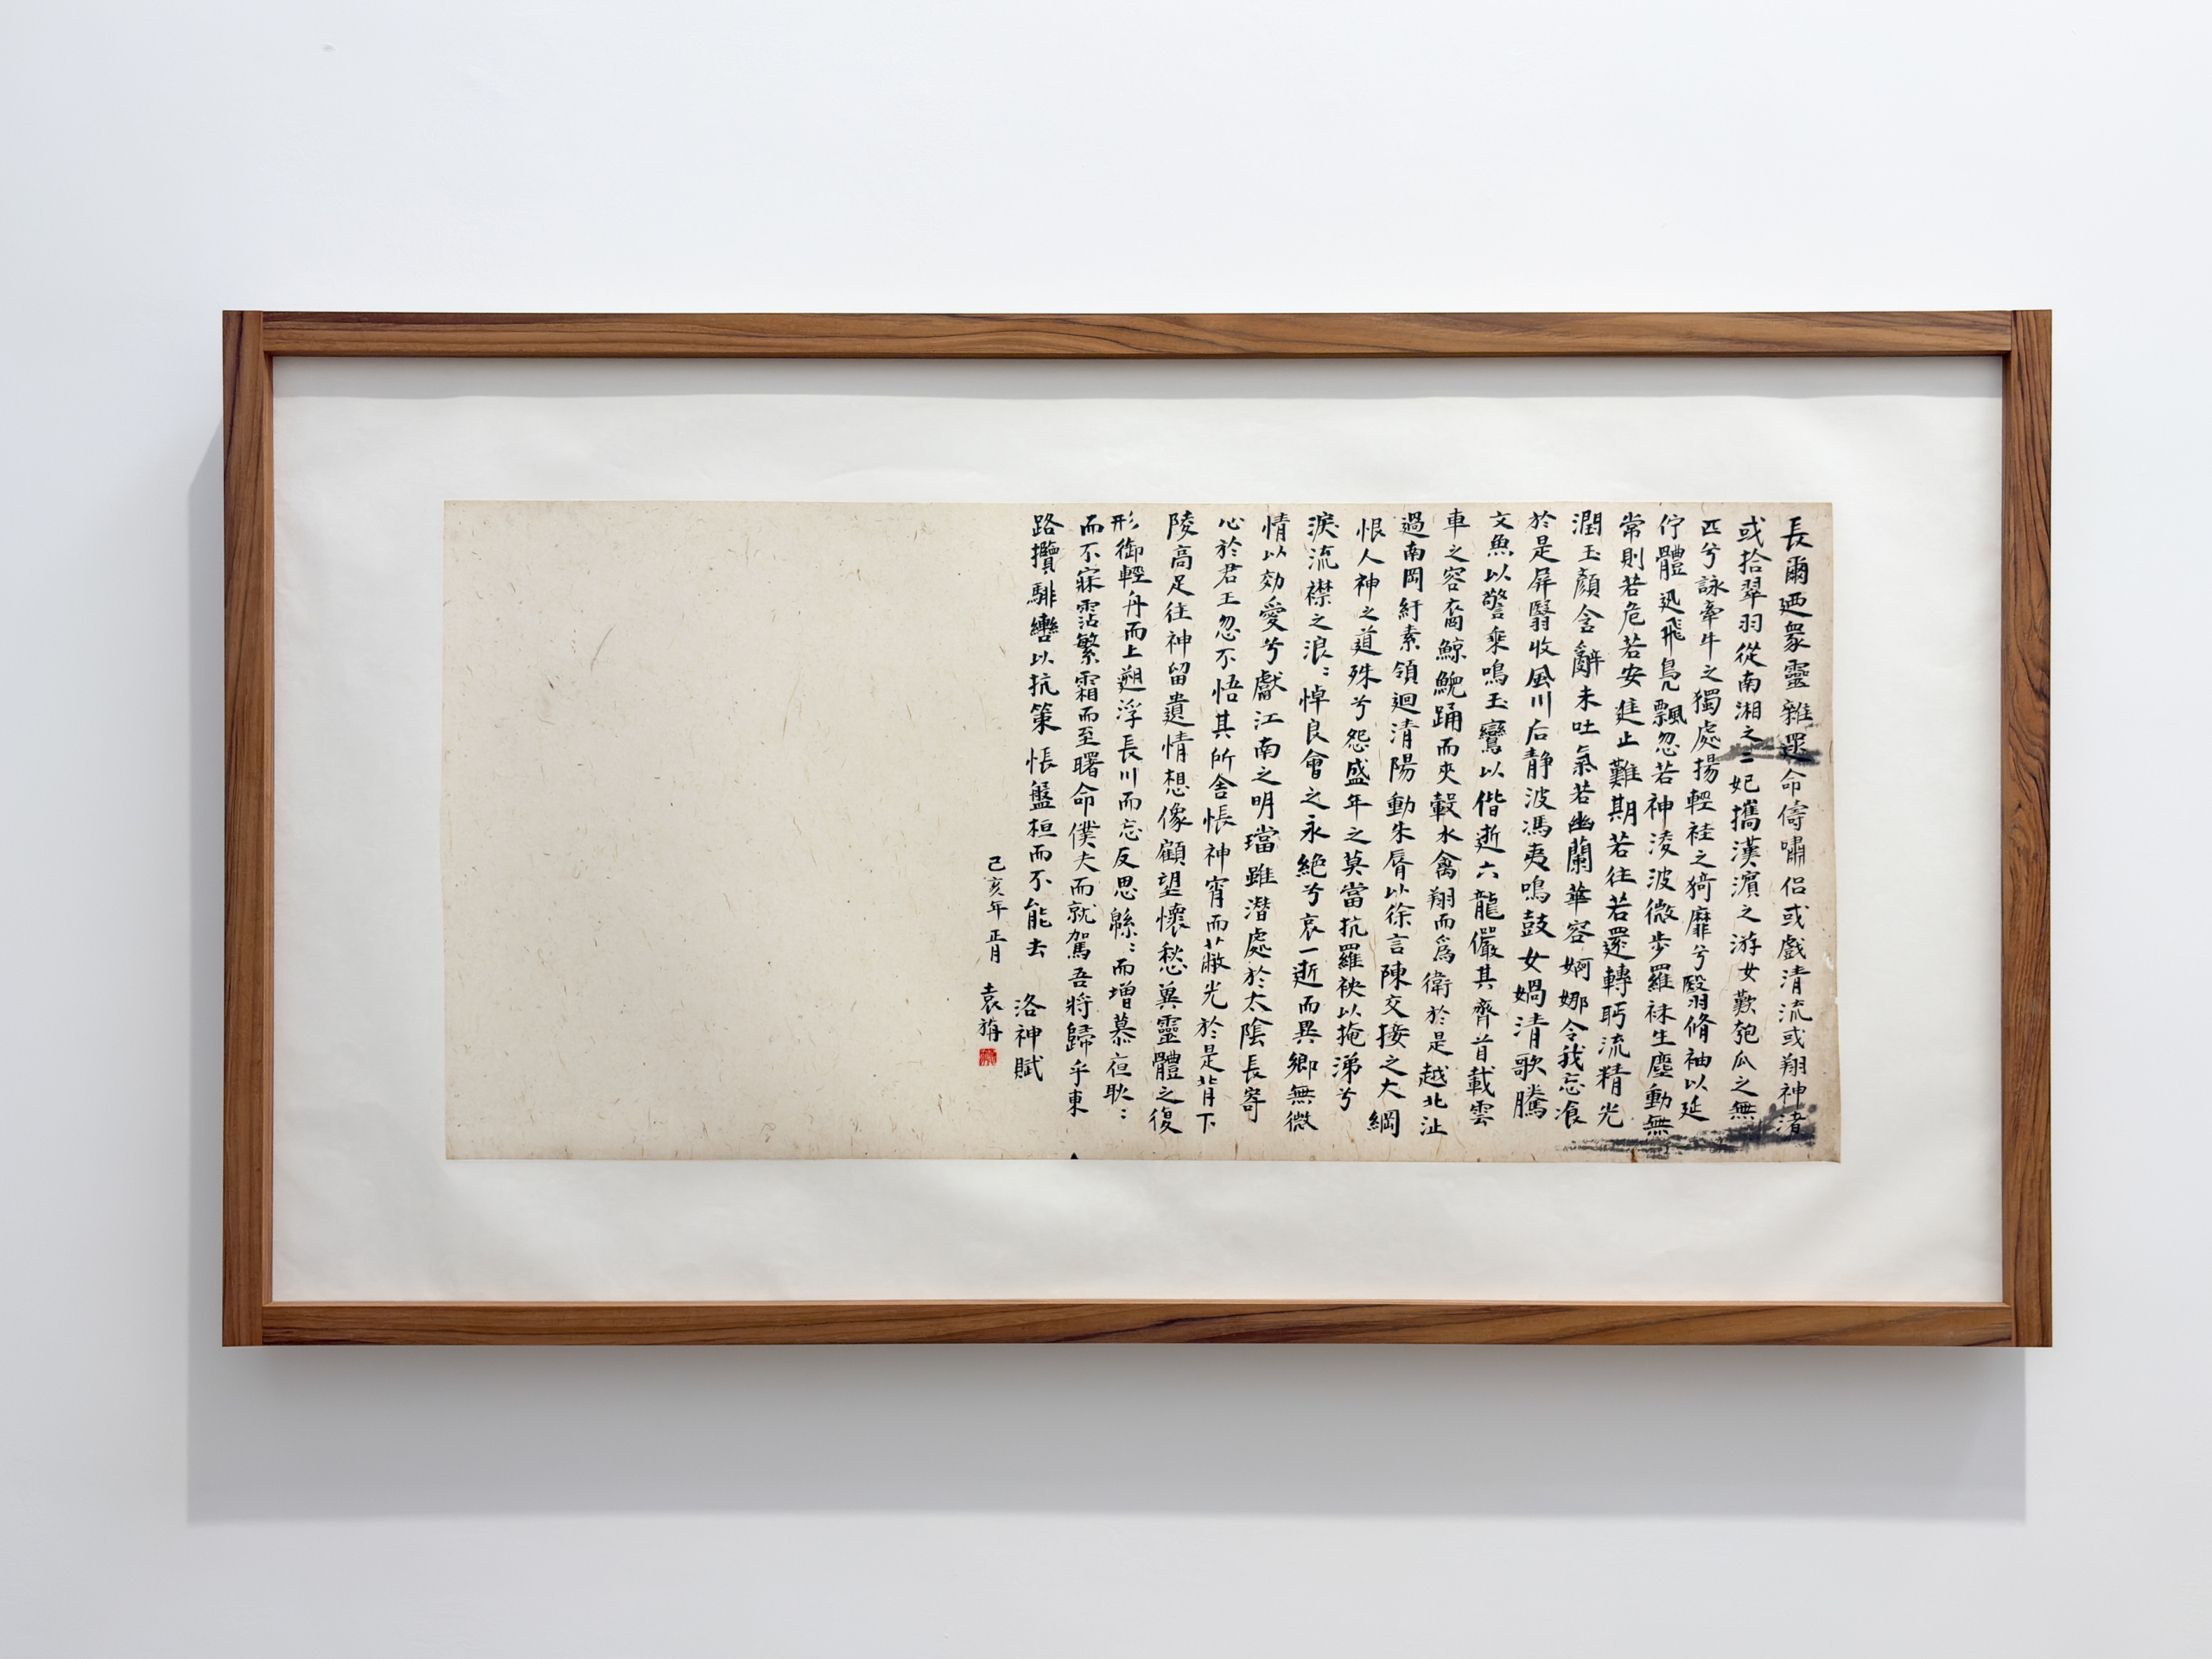 長爾廼衆靈雜遝命儔嘯侶或戲清流或翔神渚
或拾翠羽從南湘之二妃攜漢濱之游女歎匏瓜之無
匹兮詠牽牛之獨處揚輕袿之猗靡兮翳脩袖以延
佇體迅飛鳧飄忽若神淩波微步羅襪生塵動無
常則若危若安進止難期若往若還轉眄流精光
潤玉顏含辭未吐氣若幽蘭華容婀娜令我忘飡
於是屏翳收風川后靜波馮夷鳴鼓女媧清歌騰
文魚以警乘鳴玉鸞以偕逝六龍儼其齊首載雲
車之容裔鯨鯢踊而夾轂水禽翔而爲衛於是越北沚
過南岡紆素領迴清陽動朱脣以徐言陳交接之大綱
恨人神之道殊兮怨盛年之莫當抗羅袂以掩涕兮
淚流襟之浪:悼良會之永絕兮哀一逝而異鄉無微
情以効愛兮獻江南之明璫雖潛處於太陰長寄
心於君王忽不悟其所舍悵神宵而蔽光於是背下
陵高足往神留遺情想像顧望懷愁冀靈體之復
形御輕舟而上遡浮長川而忘反思緜:而增慕夜耿:
而不寐霑繁霜而至曙命僕夫而就駕吾將歸乎東
路攬騑轡以抗策悵盤桓而不能去 洛神賦
己亥年正月 袁旃